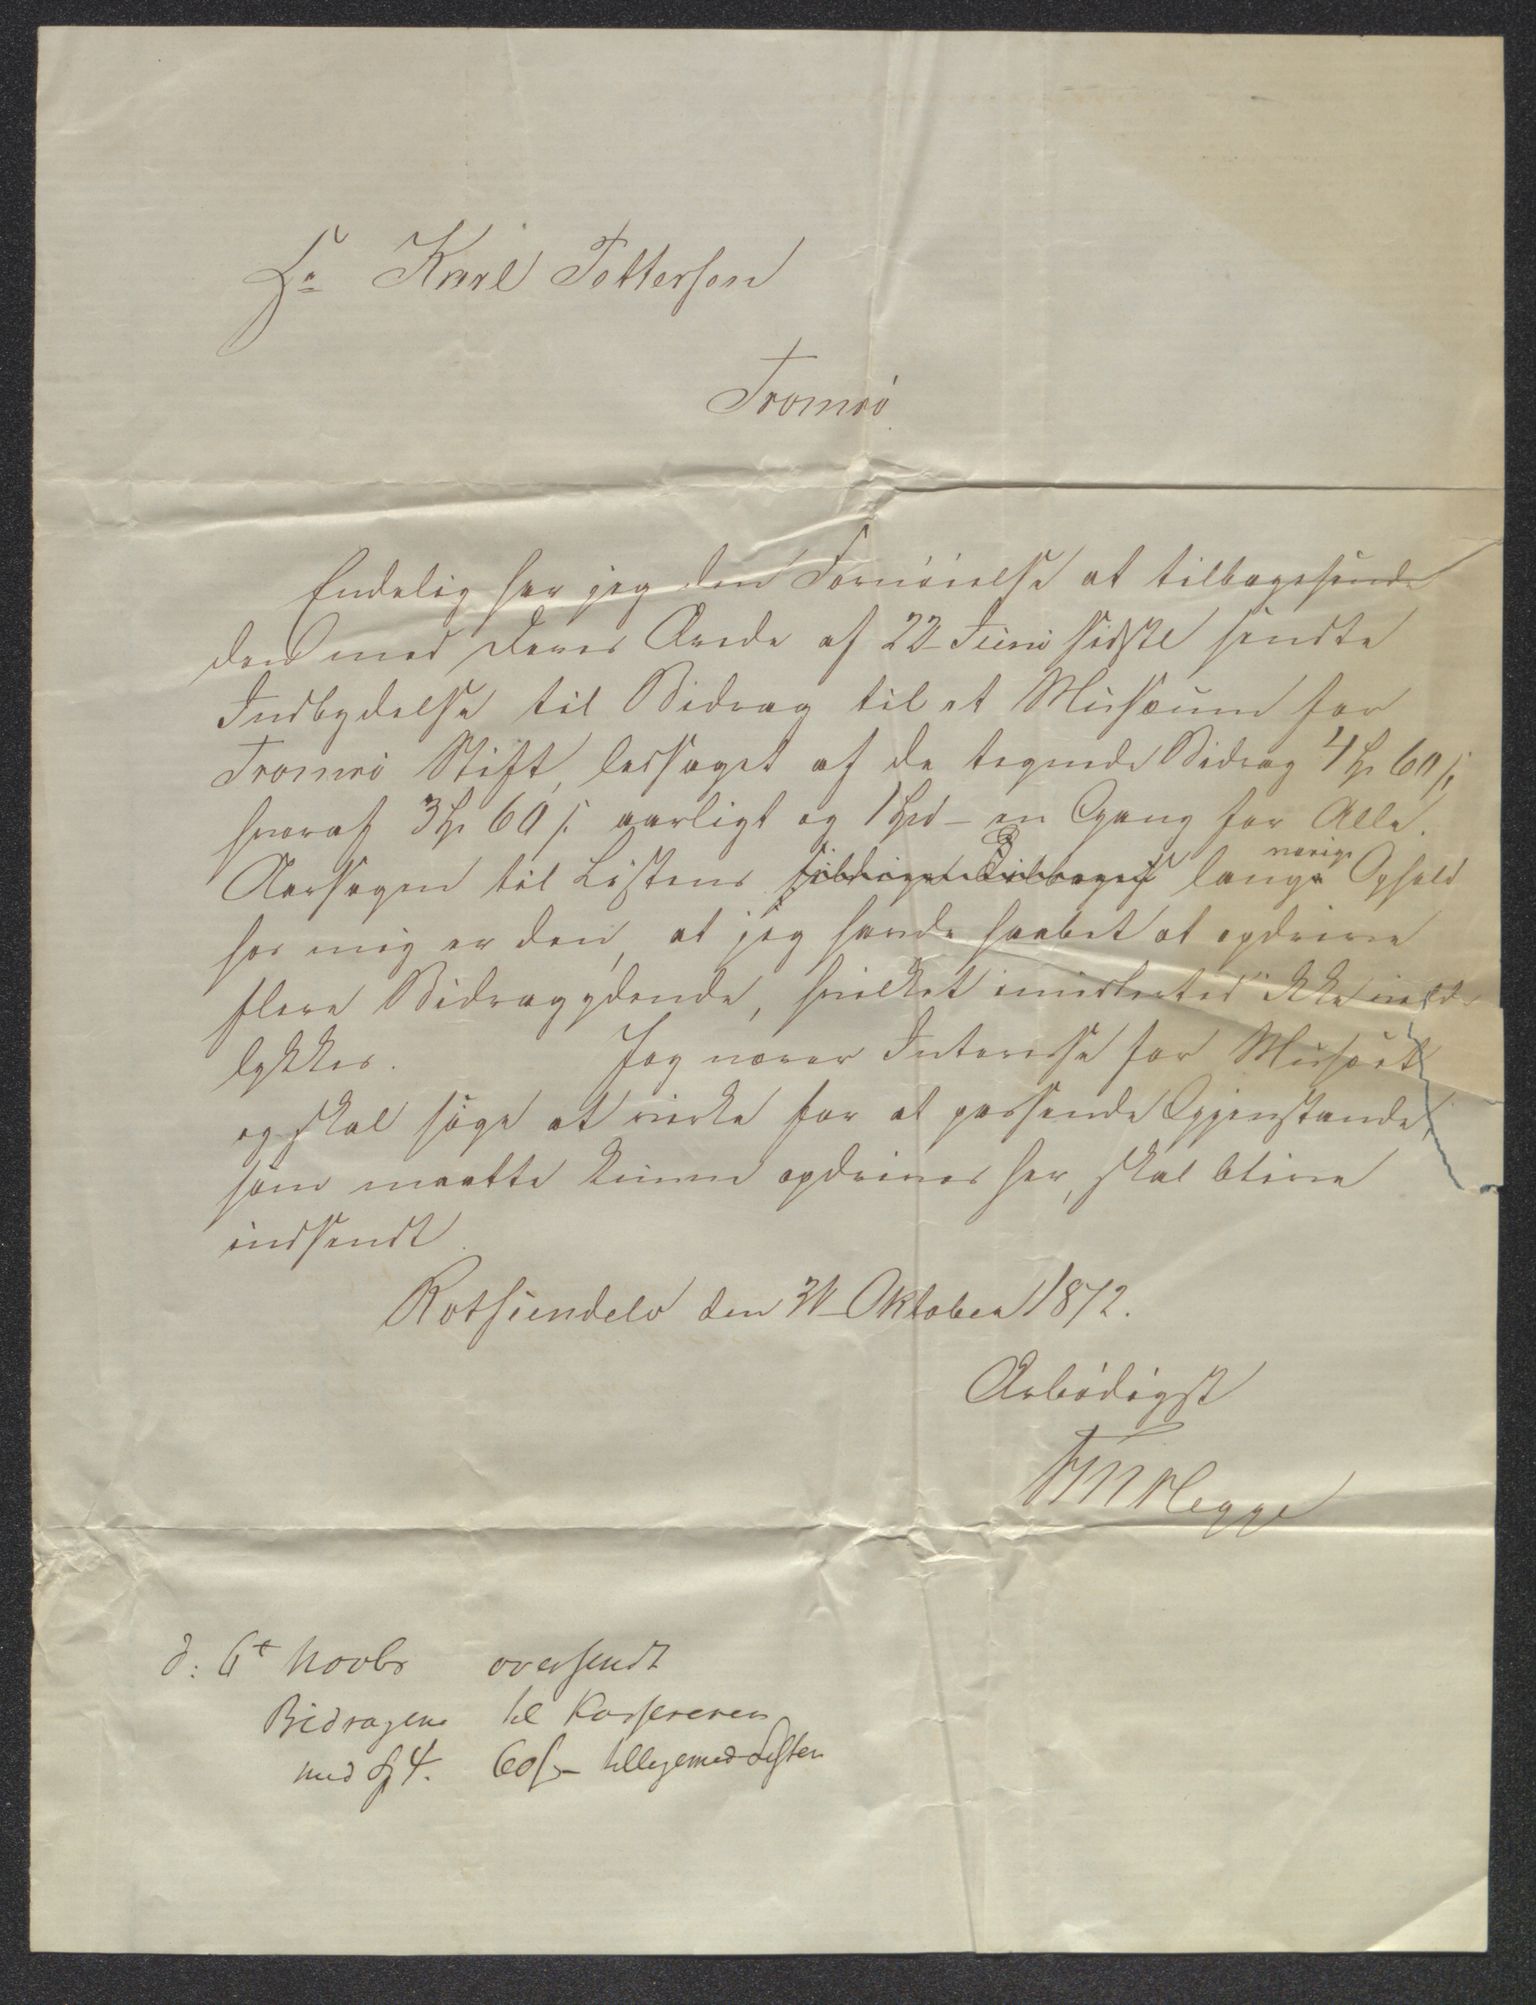 Hr Karl Pettersen
Tromsø
Endelig har jeg den Fornøielse at tilbagesende
den med Deres Ærede af 22 Juni sidstl sendte
Indbydelse til Bidrag til et Musæum for
Tromsø Stift, ledsaget af de tegnede Bidrag 4 Sp 60 s,
hvoraf 3 Sp 60 s. aarligt og 1 Spd en Gang for Alle.
Aarsagen til Listens lange Ophold
hos mig er den, at jeg havde haabet at opdrive
flere Bidragydende, hvilket imidlertid ikke vilde
lykkes. Jeg nærer Interesse for Musæet
og skal søge at virke for at passende Gjenstande,
som maatte kunne opdrives her, skal blive
indsendt.
Rotsundelv den 31 Oktober 1872.
Ærbødigst
Hegge
d: 6t Novbr oversendt
Bidragene til Kassereren
med Sp 4. 60 s tilligemed Listen